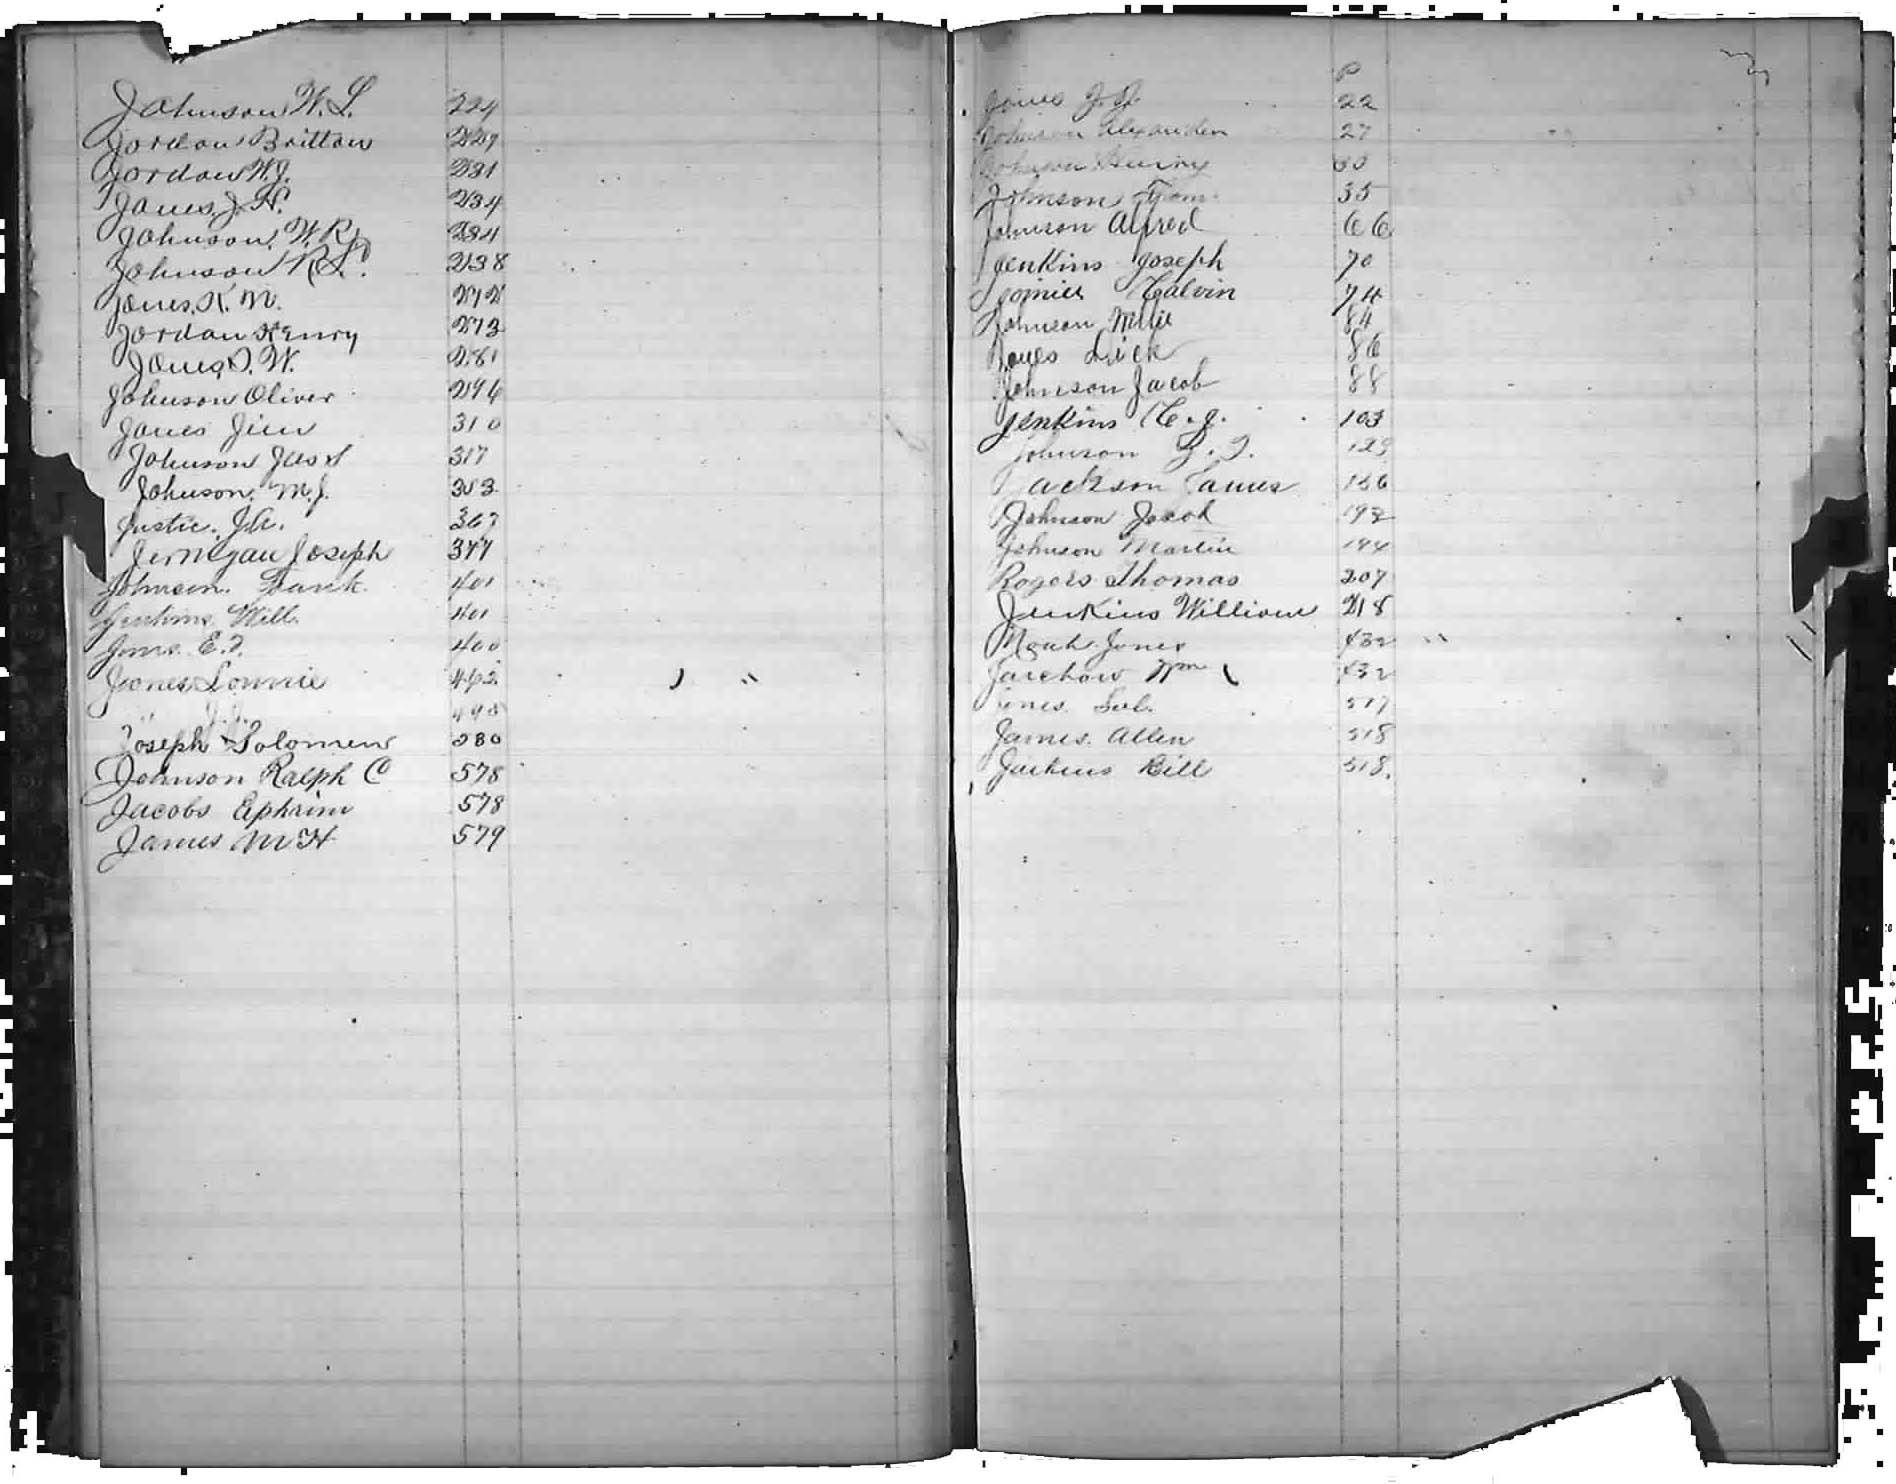 Johnson W. L. 224
Jordan Brittan 229
Jordan W. J. 231
Jones, J. H. 234
Johnson, W. R. 234
Johnson R. L. 238
Jones, K. M. 212
Jordan Henry 273
Jones, D. W. 281
Johnson Oliver 296
Jones Jim 310
Johnson Jas S 317
Johnson, M. J. 353
Justic, J. A. 367
Jernegan Joseph 377
Johnson Frank. 401
Jenkins Will. 401
Jones E. T. 400
Jones Lonnie 462
" J. J. 498
Joseph Solomen 580
Johnson Ralph C 578
Jacobs Ephrim 578
James M H 579
P
Jones 22
Johnson Alexander 27
Johnson Henry 30
Johnson Thom. 35
Johnson Alfred 66
Jenkins Joseph 70
Calvin 74
Johnson Millie 84
Jones Dick 86
Johnson Jacob 88
Jenkins C. J. 103
Johnson 123
Jackson James 156
Johnson Jacob 192
Johnson Martin 194
Rogers Thomas 207
Jenkins William 218
Noah Jones 432
Jarchow Wm 432
Jones Sol. 517
James Allen 518
Jackins Bill 518.